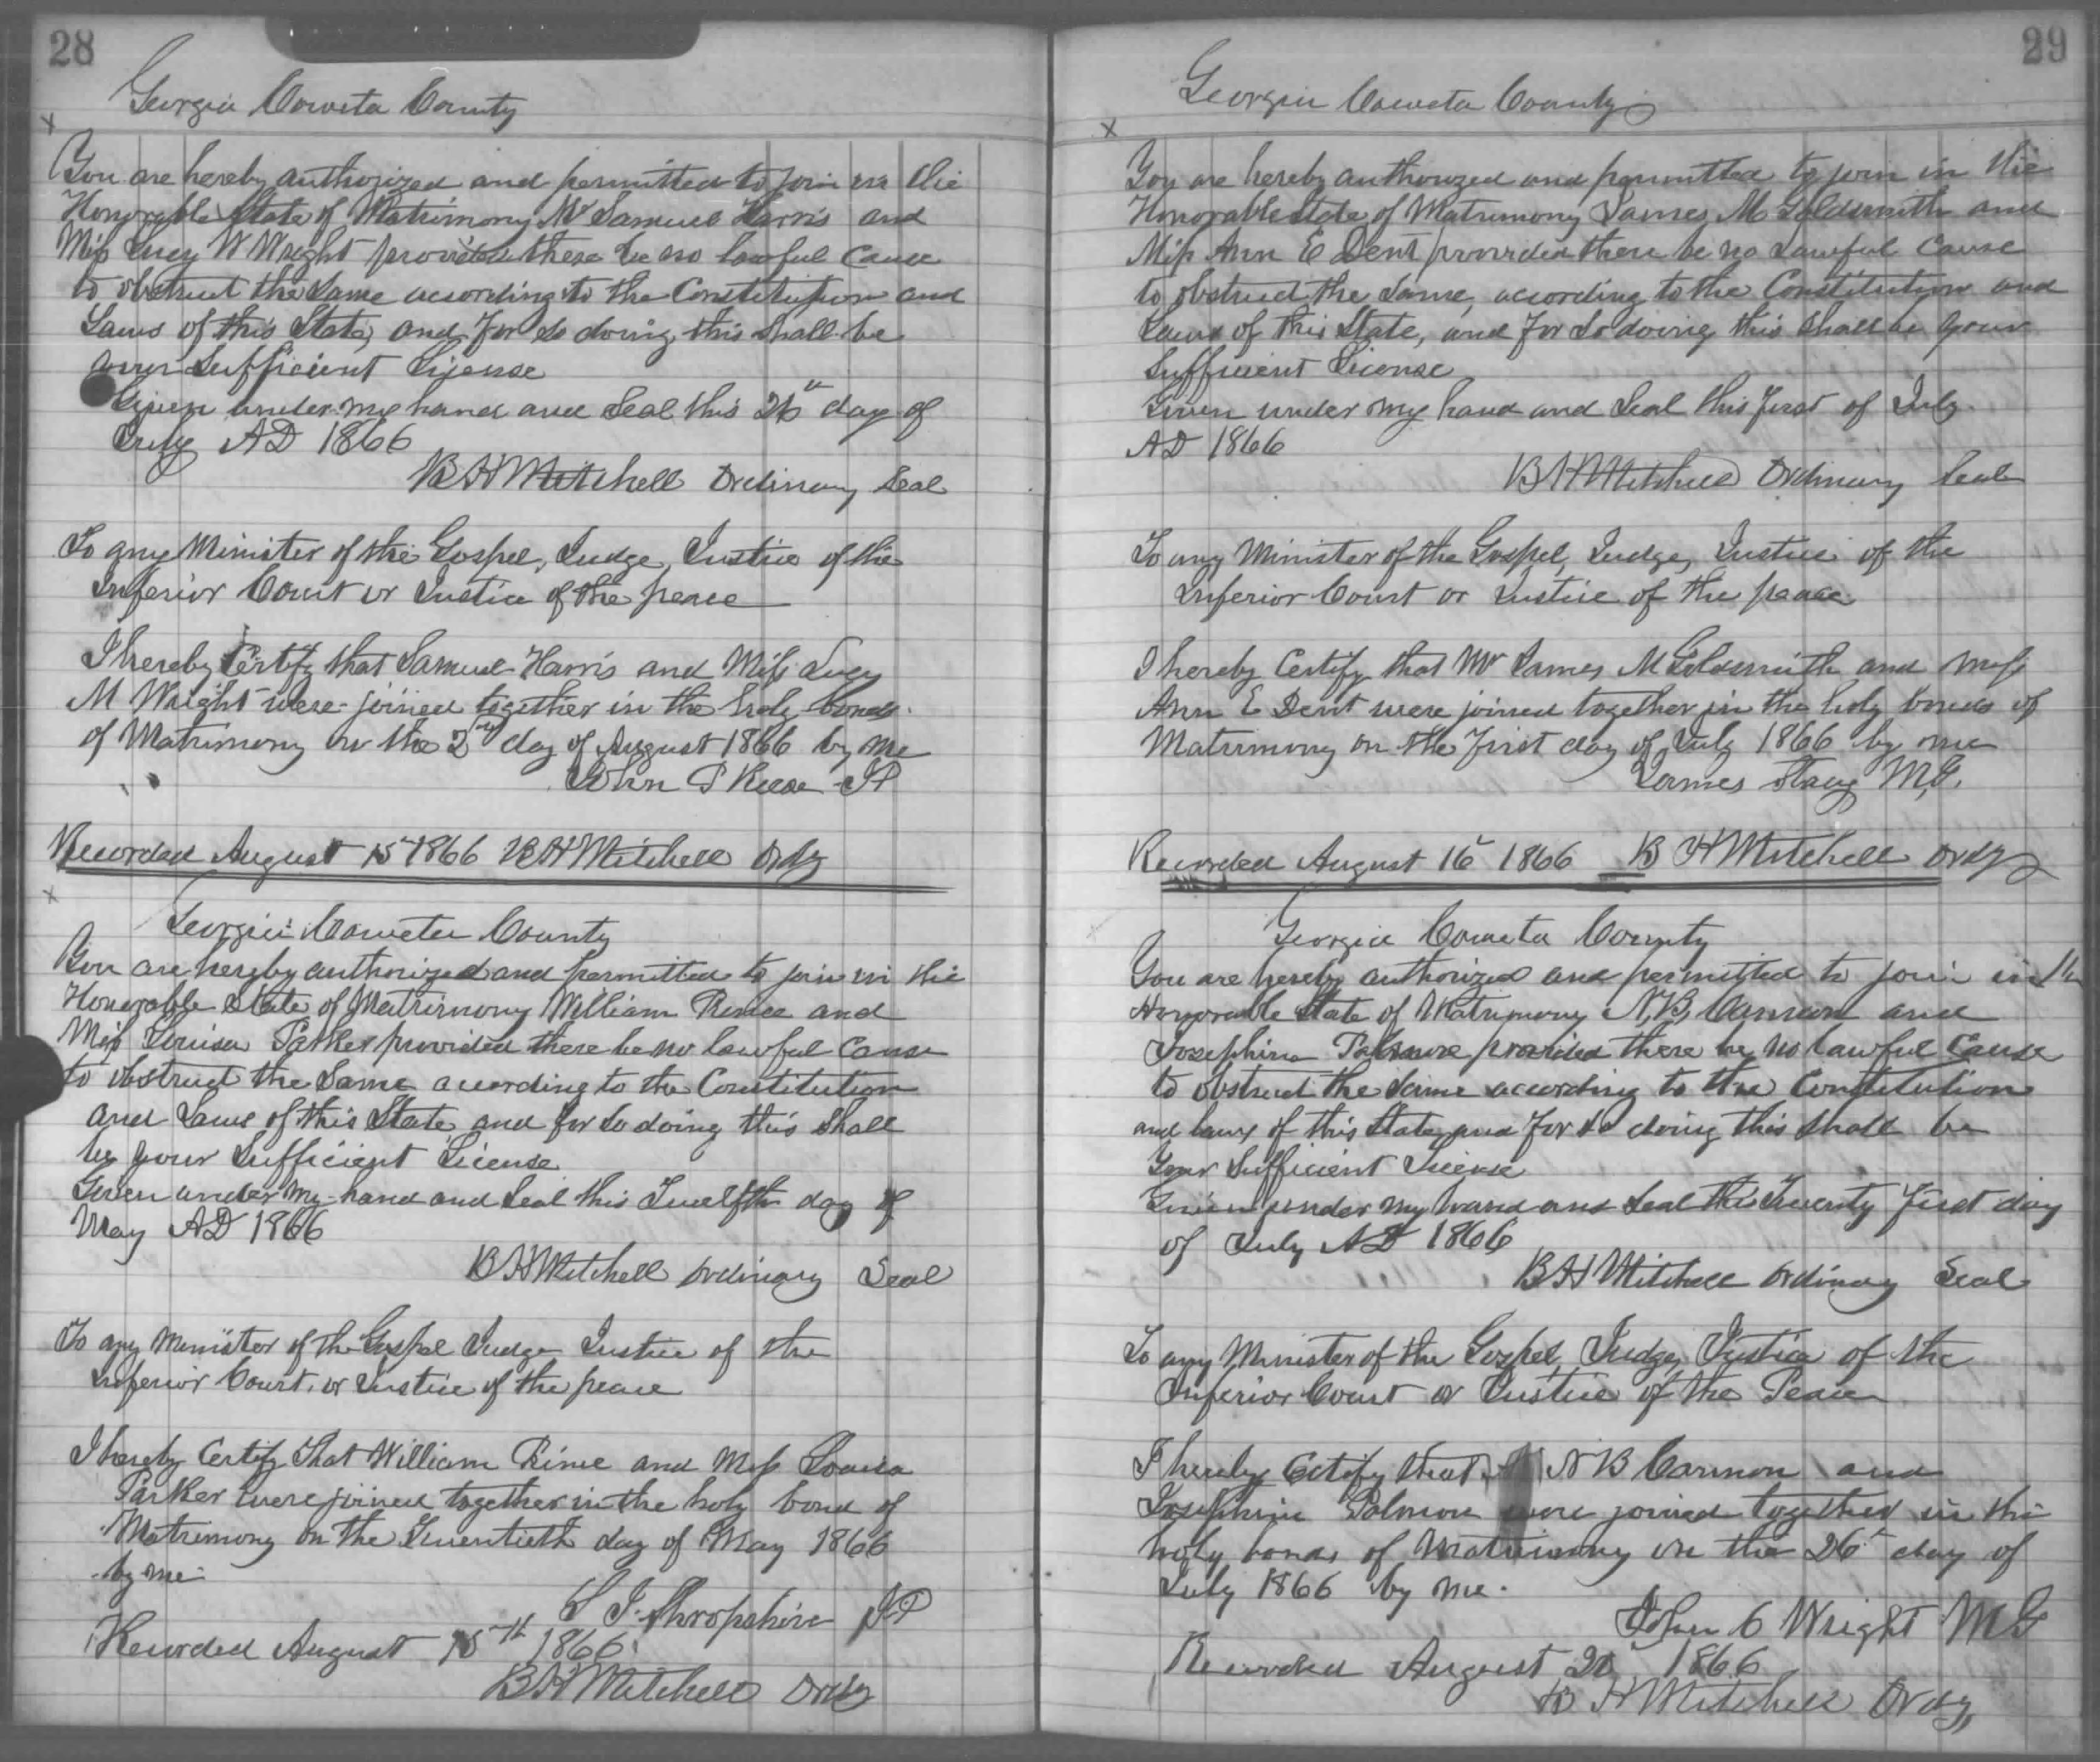 28
Georgia Coweta County
You are hereby authorized and permitted to join in the
Honorable State of Matrimony Mr Samuel Harris and
Miss Lucy W Wright provided there be no lawful Cause
to obstruct the Same according to the Constitution and
Laws of this State, and for So doing this Shall be
your Sufficient License
Given under my hand and Seal this 26th day of
July AD 1866
B H Mitchell Ordinary Seal
To any Minister of the Gospel, Judge, Justice of the
Inferior Court or Justice of the peace
I hereby Certify that Samuel Harris and Miss Lucy
M Wright were joined together in the holy bonds
of Matrimony on the 2nd day of August 1866 by me
John P Reese JP
Recorded August 15 1866 B H Mitchell Ordy
Georgia Coweta County
You are hereby authorized and permitted to join in the
Honorable State of Matrimony William and
Miss Louisa Parker provided there be no lawful Cause
to obstruct the Same according to the Constitution
and Laws of this State and for So doing this Shall
be your Sufficient License
Given under my hand and Seal this Twelfth day of
May AD 1866
B H Mitchell Ordinary Seal
To any Minister of the Gospel Judge Justice of the
Inferior Court or Justice of the peace
I hereby Certify That William and Miss Louisa
Parker were joined together in the holy bond of
Matrimony on the Twentieth day of May 1866
by me
S J Shropshire JP
Recorded August 15th 1866
B H Mitchell Ordy
29
Georgia Coweta County
You are hereby authorized and permitted to join in the
Honorable State of Matrimony James M Goldsmith and
Miss Ann E Dent provided there be no Lawful Cause
to obstruct the Same, according to the Constitution and
Laws of this State, and for So doing this Shall be your
Sufficient License
Given under my hand and Seal this first of July
AD 1866
B H Mitchell Ordinary Seal
To any Minister of the Gospel, Judge, Justice of the
Inferior Court or Justice of the peace
I hereby Certify that Mr James M Goldsmith and Miss
Ann E Dent were joined together in the holy bonds of
Matrimony on the First day of July 1866 by me
James Stacy M.G.
Recorded August 16 1866 B H Mitchell Ordy
Georgia Coweta County
You are hereby authorized and permitted to join in the
Honorable State of Matrimony N.B. Carmon and
Josephine Palmore provided there be no lawful Cause
to obstruct the Same according to the Constitution
and laws of this State and for So doing this Shall be
Your Sufficient License
Given under my hand and Seal this Twenty First day
of July AD 1866
B H Mitchell Ordinary Seal
To any Minister of the Gospel, Judge, Justice of the
Inferior Court or Justice of the Peace
I hereby Certify that N B Carmon and
Josephine Palmore were joined together in the
holy bonds of Matrimony on the 26 day of
July 1866 by me.
John C Wright MG
Recorded August 1866
B H Mitchell Ordy,